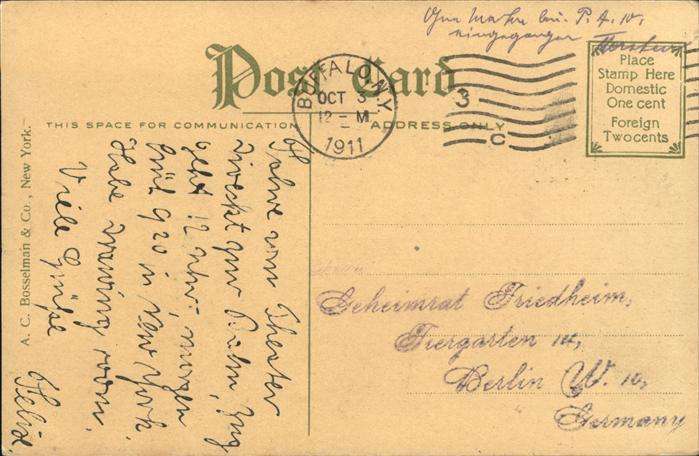 Ohne Marke bei P. A. 10,
eingegangen
Post Card
BUFFALO, N.Y.
OCT 3
12 - M
1911
3
C
Place
Stamp Here
Domestic
One cent
Foreign
Two cents
THIS SPACE FOR COMMUNICATION
ADDRESS ONLY
A. C. Bosselman & Co., New York.
Fahre vom Theater
direckt zur Bahn, Zug
geht 12 Uhr, morgen
früh 9 20 in New York.
Habe drawing room.
Viele Grüße
Felix.
Geheimrat Friedheim,
Tiergarten 14,
Berlin W. 10,
Germany